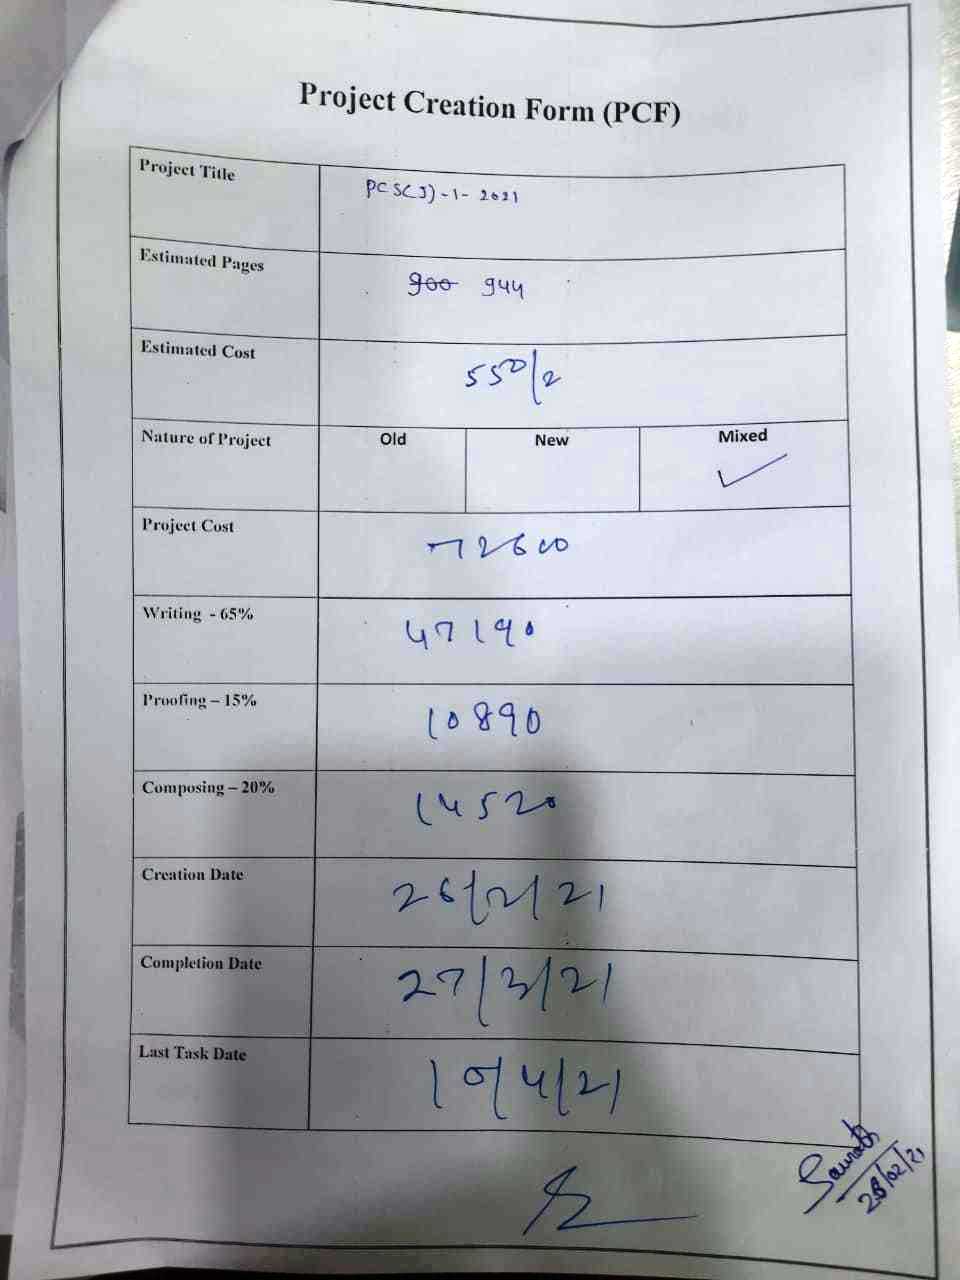 Project Creation Form (PCF)
Project Title PCS(J)-1-2021
Estimated Pages 900 944
Estimated Cost 550/2
Nature of Project Old New Mixed ✓
Project Cost 72600
Writing - 65% 47190
Proofing – 15% 10890
Composing – 20% 14520
Creation Date 26/2/21
Completion Date 27/3/21
Last Task Date 10/4/21
Saurabh
28/02/21